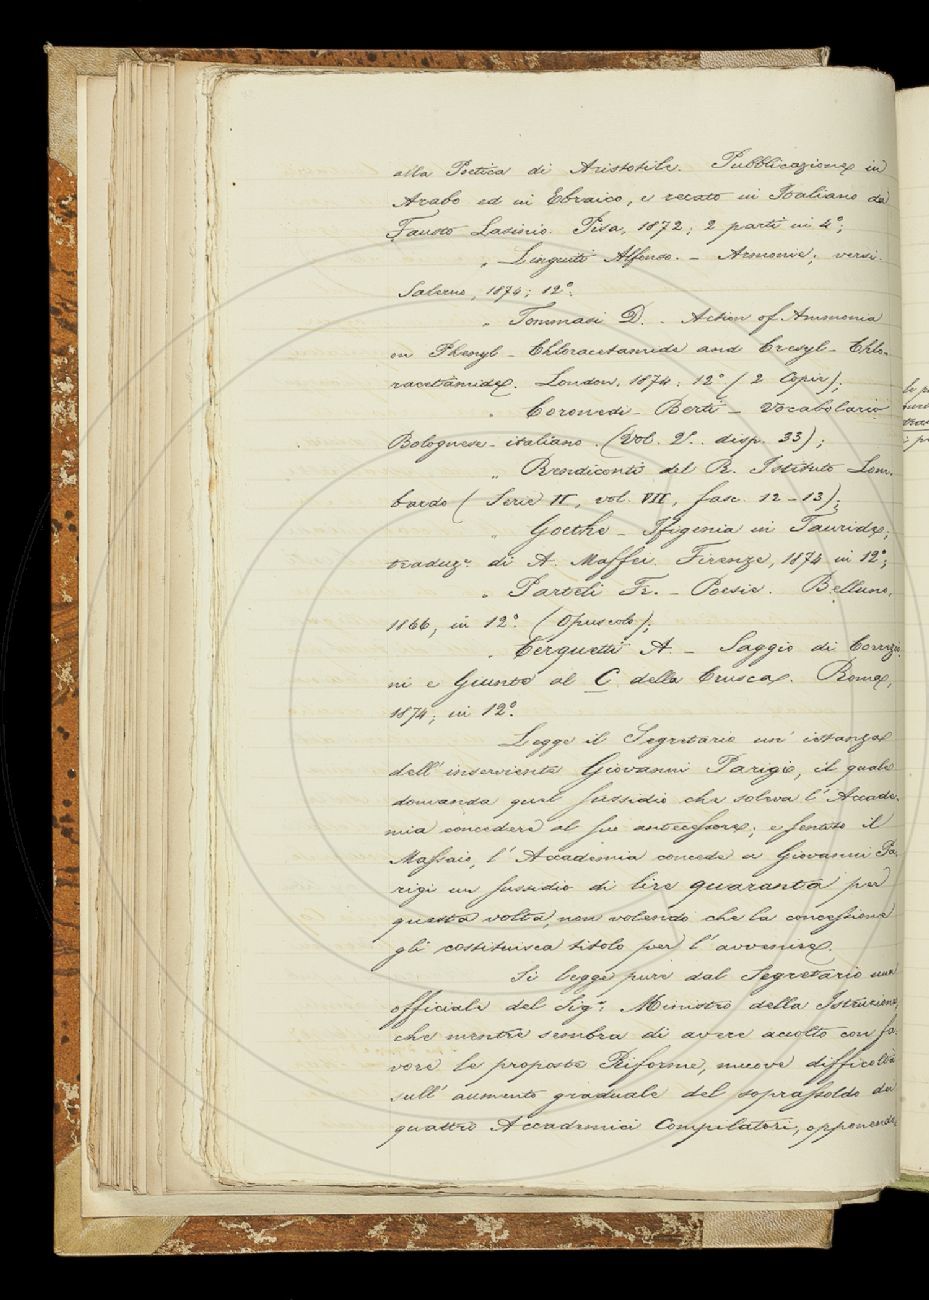 alla Poetica di Aristotile. Pubblicazione in
Arabo ed in Ebraico, e recato in Italiano da
Fausto Lasinio. Pisa, 1872; 2 parti in 4°;
„ Linguiti Alfonso. – Armonie; versi.
Salerno, 1874; 12°.
„ Tommasi D. – Action of Ammonia
on Phenyl – Chloracetamide and Cresyl – Chlo-
racetamide. London, 1874; 12° (2 Copie);
„ Coronedi – Berti – Vocabolario
Bolognese – italiano. (Vol. 2°. disp. 33);
„ Rendiconti del R. Istituto Lom-
bardo (Serie II, vol. VII, fasc. 12–13);
„ Goethe – Ifigenia in Tauride;
traduz.e di A. Maffei. Firenze, 1874 in 12°;
„ Parteli Fr. – Poesie. Belluno,
1866, in 12°. (Opuscolo);
„ Cerquetti A. – Saggio di Correzio
ni e Giunte al C. della Crusca. Roma,
1874; in 12°.
Legge il Segretario un' istanza
dell' inserviente Giovanni Parigi, il quale
domanda quel sussidio che soleva l' Accade-
mia concedere al suo antecessore; e sentito il
Massaio, l' Accademia concede a Giovanni Pa-
rigi un sussidio di lire quaranta per
questa volta, non volendo che la concessione
gli costituisca titolo per l' avvenire.
Si legge pure dal Segretario una
officiale del Sig.r Ministro della Istruzione,
che mentre sembra di avere accolto con fa-
vore le proposte Riforme, muove difficoltà
sull' aumento graduale del soprassoldo dei
quattro Accademici Compilatori, opponendo